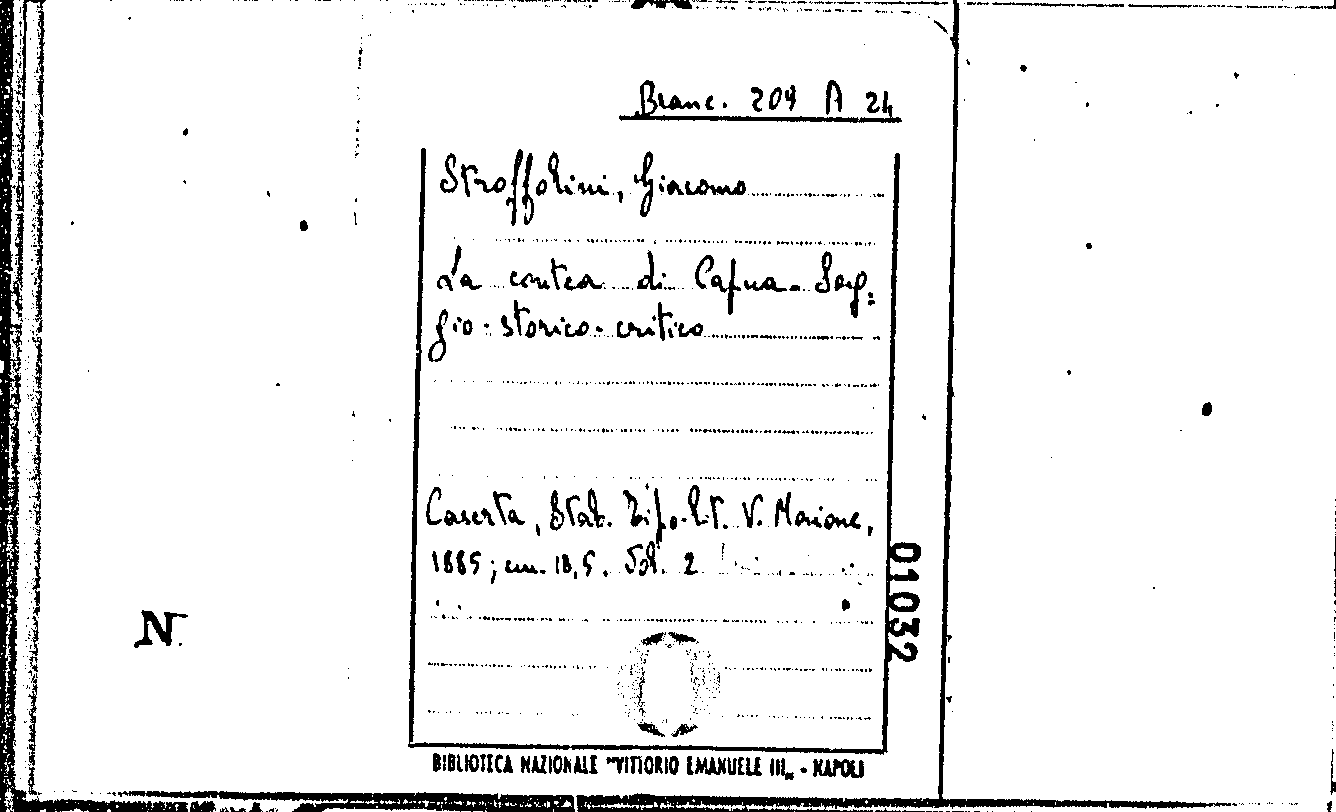 Branc. 209 A 24
Stroffolini, Giacomo
La contea di Capua. Sag:
gio-storico-critico
Caserta, Stab. Tipo-Lit. V. Marione,
1885; cm. 18,5. Vol. 2
01032
N
BIBLIOTECA NAZIONALE "VITTORIO EMANUELE III„ - NAPOLI